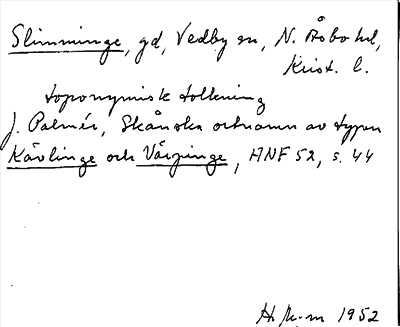 Slimminge, gd, Vedby sn, N. Åsbo hd,
Krist. l.
toponymisk tolkning
J. Palmér, Skånska ortnamn av typen
Kävlinge och Värpinge, ANF 52, s. 44
1952